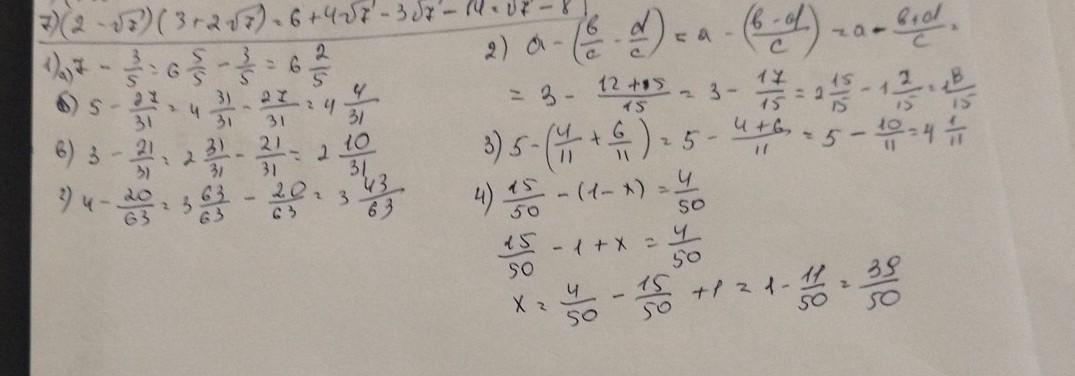 7) (2 - √7)(3 + 2√7) = 6 + 4√7 - 3√7 - 14 = √7 - 8
1) а) 7 - 3/5 = 6 5/5 - 3/5 = 6 2/5
б) 5 - 27/31 = 4 31/31 - 27/31 = 4 4/31
в) 3 - 21/31 = 2 31/31 - 21/31 = 2 10/31
г) 4 - 20/63 = 3 63/63 - 20/63 = 3 43/63
2) a - (b/c - d/c) = a - ((b - d)/c) = a - (b+d)/c =
= 3 - (12 + 5)/15 = 3 - 17/15 = 2 15/15 - 1 2/15 = 1 13/15
3) 5 - (4/11 + 6/11) = 5 - (4+6)/11 = 5 - 10/11 = 4 1/11
4) 15/50 - (1 - x) = 4/50
15/50 - 1 + x = 4/50
x = 4/50 - 15/50 + 1 = 1 - 11/50 = 39/50